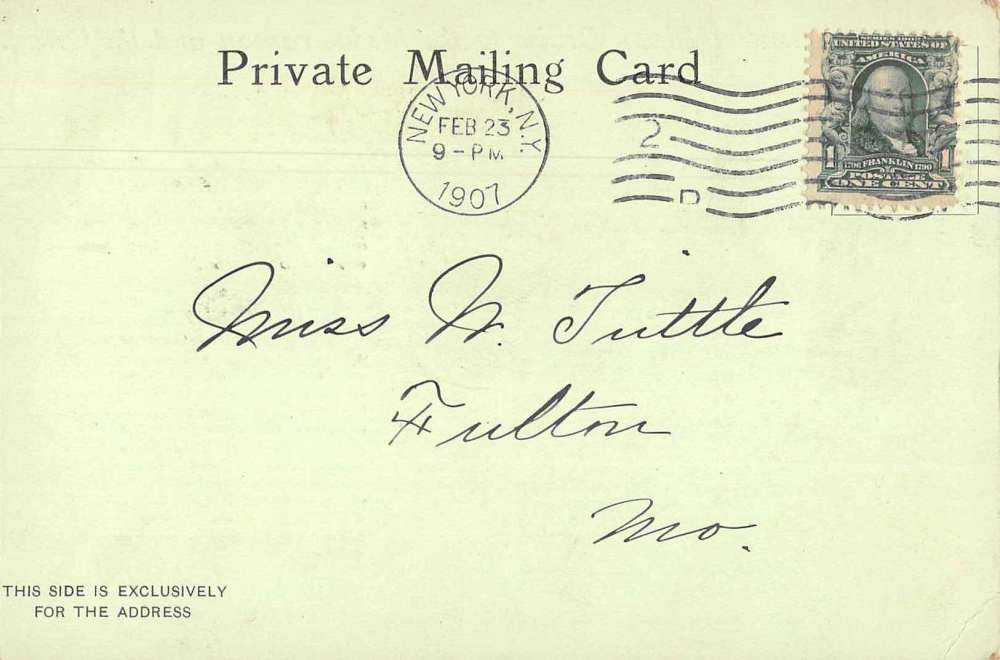 Private Mailing Card
NEW YORK, N.Y.
FEB 23
9-PM
1907
2
D
SERIES 1902
UNITED STATES OF
AMERICA
1706 FRANKLIN 1790
1 1
POSTAGE
ONE CENT
Miss W. Tuttle
Fulton
Mo.
THIS SIDE IS EXCLUSIVELY
FOR THE ADDRESS